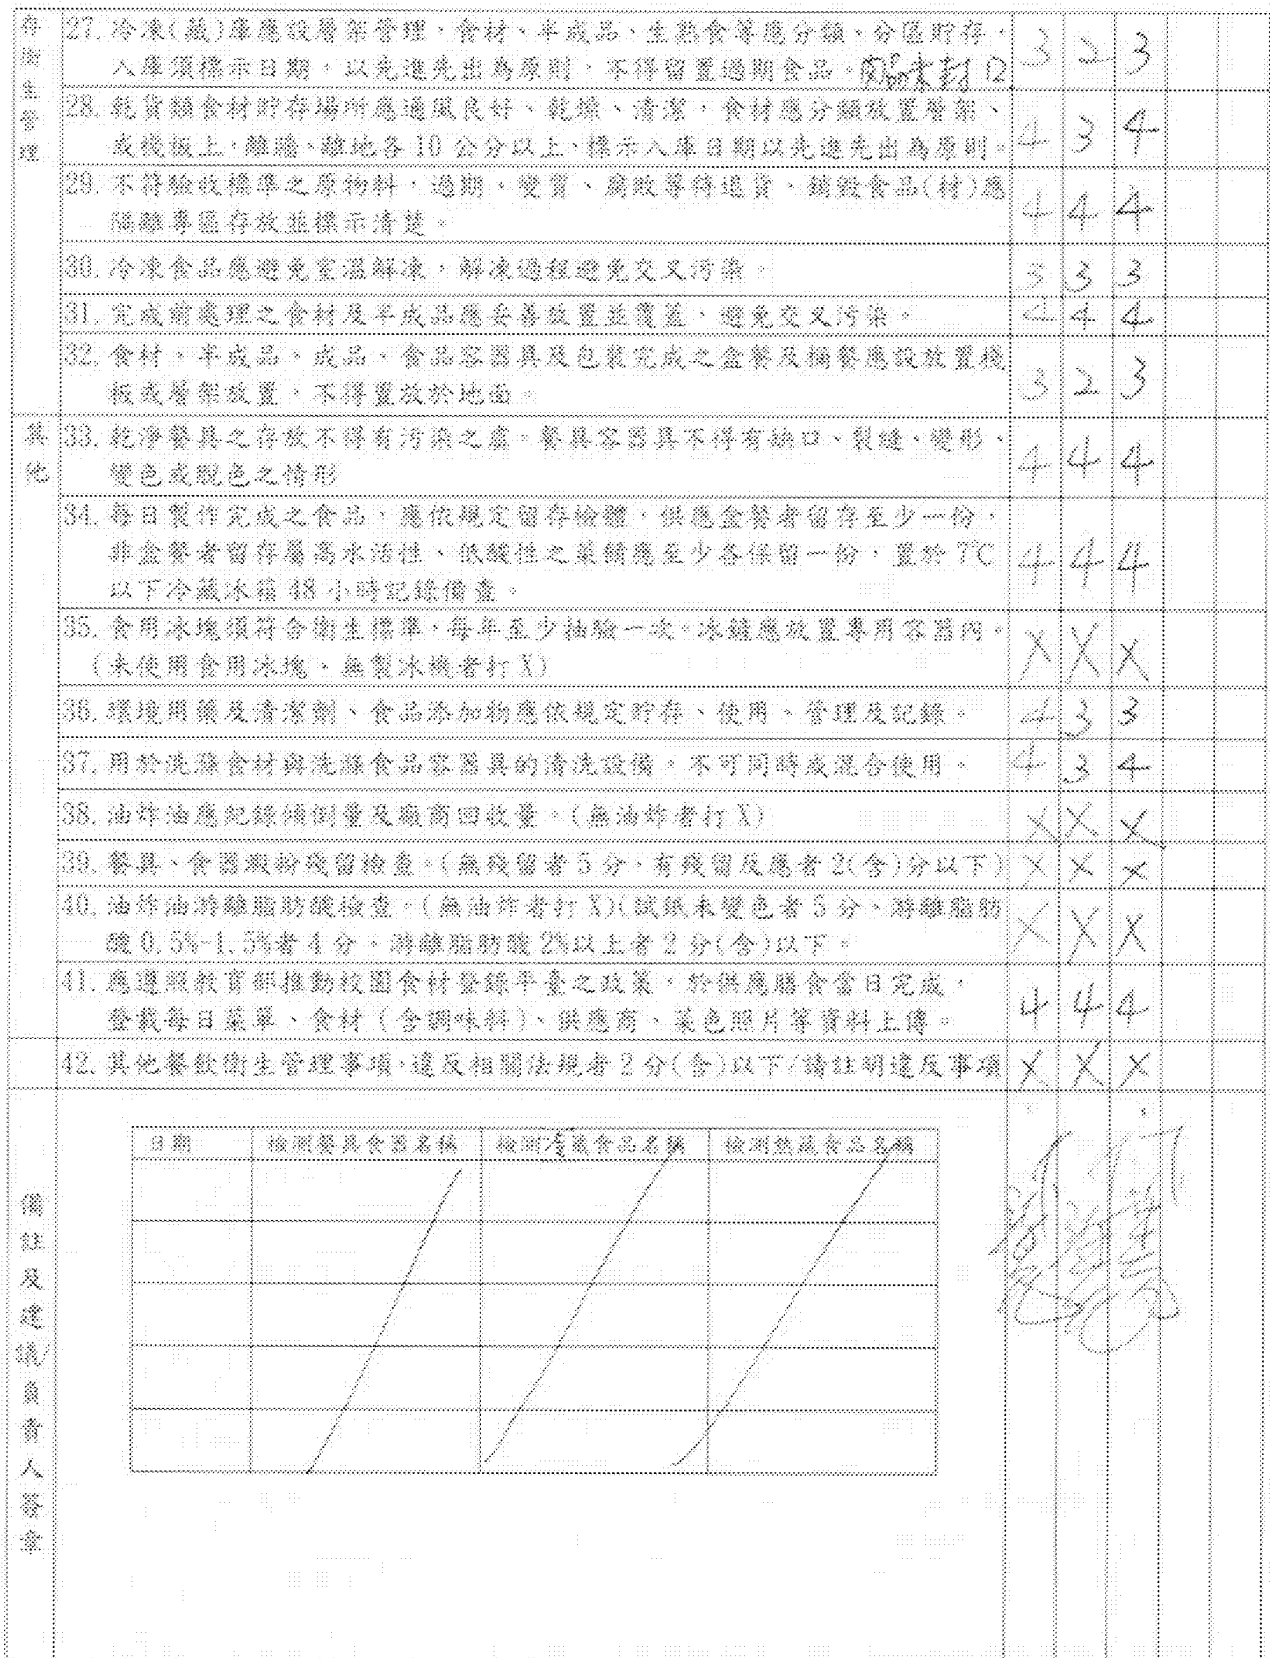 存衛生管理
27. 冷凍(藏)庫應設層架管理，食材、半成品、生熟食等應分類、分區貯存， 3 2 3
入庫須標示日期，以先進先出為原則，不得留置過期食品。開品未封口
28. 乾貨類食材貯存場所應通風良好、乾燥、清潔，食材應分類放置層架、 4 3 4
或棧板上，離牆、離地各 10 公分以上，標示入庫日期以先進先出為原則。
29. 不符驗收標準之原物料，過期、變質、腐敗等待退貨、銷毀食品(材)應 4 4 4
隔離專區存放並標示清楚。
30. 冷凍食品應避免室溫解凍，解凍過程避免交叉污染。 3 3 3
31. 完成前處理之食材及半成品應妥善放置並覆蓋，避免交叉污染。 4 4 4
32. 食材、半成品、成品、食品容器具及包裝完成之盒餐及桶餐應設放置棧 3 2 3
板或層架放置，不得置放於地面。
其他
33. 乾淨餐具之存放不得有污染之虞。餐具容器具不得有缺口、裂縫、變形、 4 4 4
變色或脫色之情形
34. 每日製作完成之食品，應依規定留存檢體，供應盒餐者留存至少一份，
非盒餐者留存屬高水活性、低酸性之菜餚應至少各保留一份，置於 7℃ 4 4 4
以下冷藏冰箱 48 小時記錄備查。
35. 食用冰塊須符合衛生標準，每年至少抽驗一次。冰鏟應放置專用容器內。 X X X
(未使用食用冰塊、無製冰機者打 X)
36. 環境用藥及清潔劑、食品添加物應依規定貯存、使用、管理及記錄。 4 3 3
37. 用於洗滌食材與洗滌食品容器具的清洗設備，不可同時或混合使用。 4 3 4
38. 油炸油應紀錄傾倒量及廠商回收量。(無油炸者打 X) X X X
39. 餐具、食器澱粉殘留檢查。(無殘留者 5 分，有殘留反應者 2(含)分以下) X X X
40. 油炸油游離脂肪酸檢查。(無油炸者打 X)(試紙未變色者 5 分、游離脂肪 X X X
酸 0.5%-1.5%者 4 分、游離脂肪酸 2%以上者 2 分(含)以下。
41. 應遵照教育部推動校園食材登錄平臺之政策，於供應膳食當日完成， 4 4 4
登載每日菜單、食材 (含調味料)、供應商、菜色照片等資料上傳。
42. 其他餐飲衛生管理事項，違反相關法規者 2 分(含)以下/請註明違反事項 X X X
備註及建議/負責人簽章
日期 檢測餐具食器名稱 檢測冷藏食品名稱 檢測熱蔬食品名稱